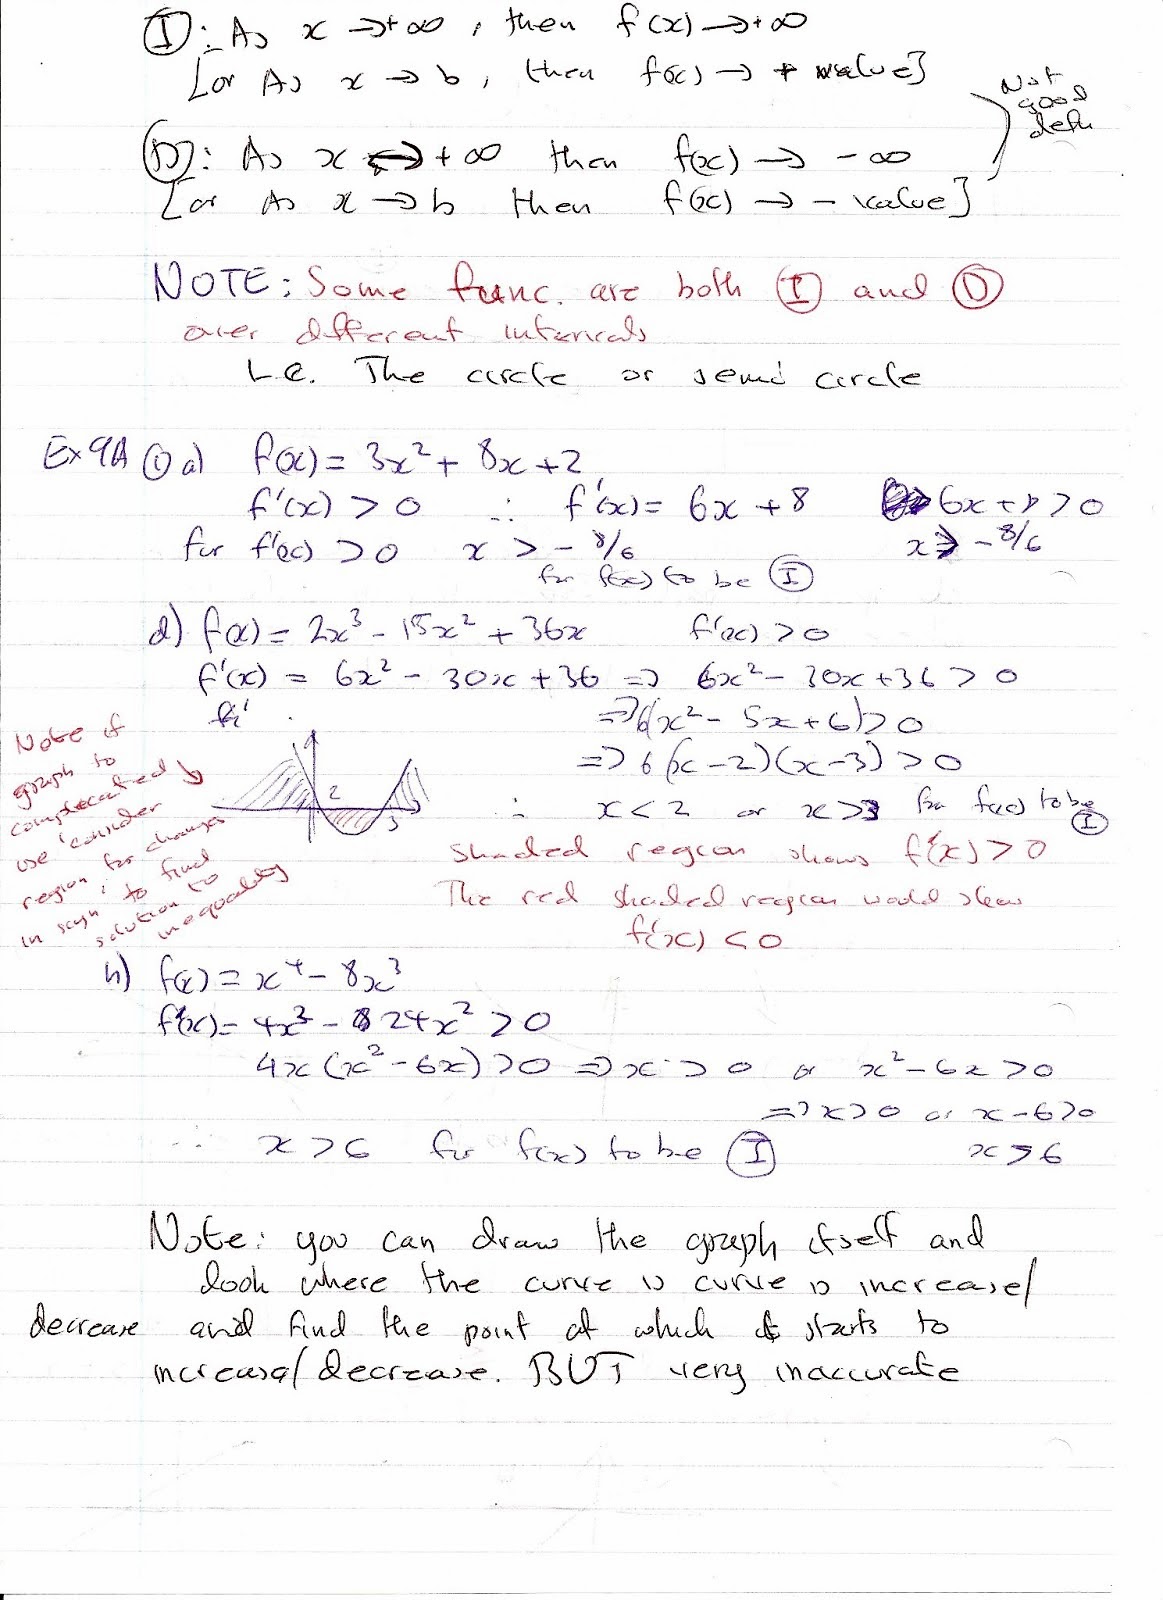 Ⓘ: As x → +∞, then f(x) → +∞
[or As x → b, then f(x) → + value]
Not good defn
Ⓓ: As x → +∞ then f(x) → -∞
[or As x → b then f(x) → - value]
NOTE: Some func. are both Ⓘ and Ⓓ
over different intervals
I.e. The circle or semi circle
Ex 9A ① a) f(x) = 3x² + 8x + 2
f'(x) > 0 ∴ f'(x) = 6x + 8 6x + 8 > 0
for f'(x) > 0 x > - 8/6 x > - 8/6
for f(x) to be Ⓘ
d) f(x) = 2x³ - 15x² + 36x f'(x) > 0
f'(x) = 6x² - 30x + 36 => 6x² - 30x + 36 > 0
=> 6(x² - 5x + 6) > 0
=> 6(x - 2)(x - 3) > 0
∴ x < 2 or x > 3 for f(x) to be Ⓘ
2
3
Note if
graph to
complecated
use 'consider
region for changes
in sign' to find
solution to
inequality
Shaded region shows f'(x) > 0
The red shaded region would show
f'(x) < 0
h) f(x) = x⁴ - 8x³
f'(x) = 4x³ - 24x² > 0
4x(x² - 6x) > 0 => x > 0 or x² - 6x > 0
=> x > 0 or x - 6 > 0
∴ x > 6 for f(x) to be Ⓘ x > 6
Note: you can draw the graph itself and
look where the curve is curve is increase/
decrease and find the point at which it starts to
increase/decrease. BUT very inaccurate